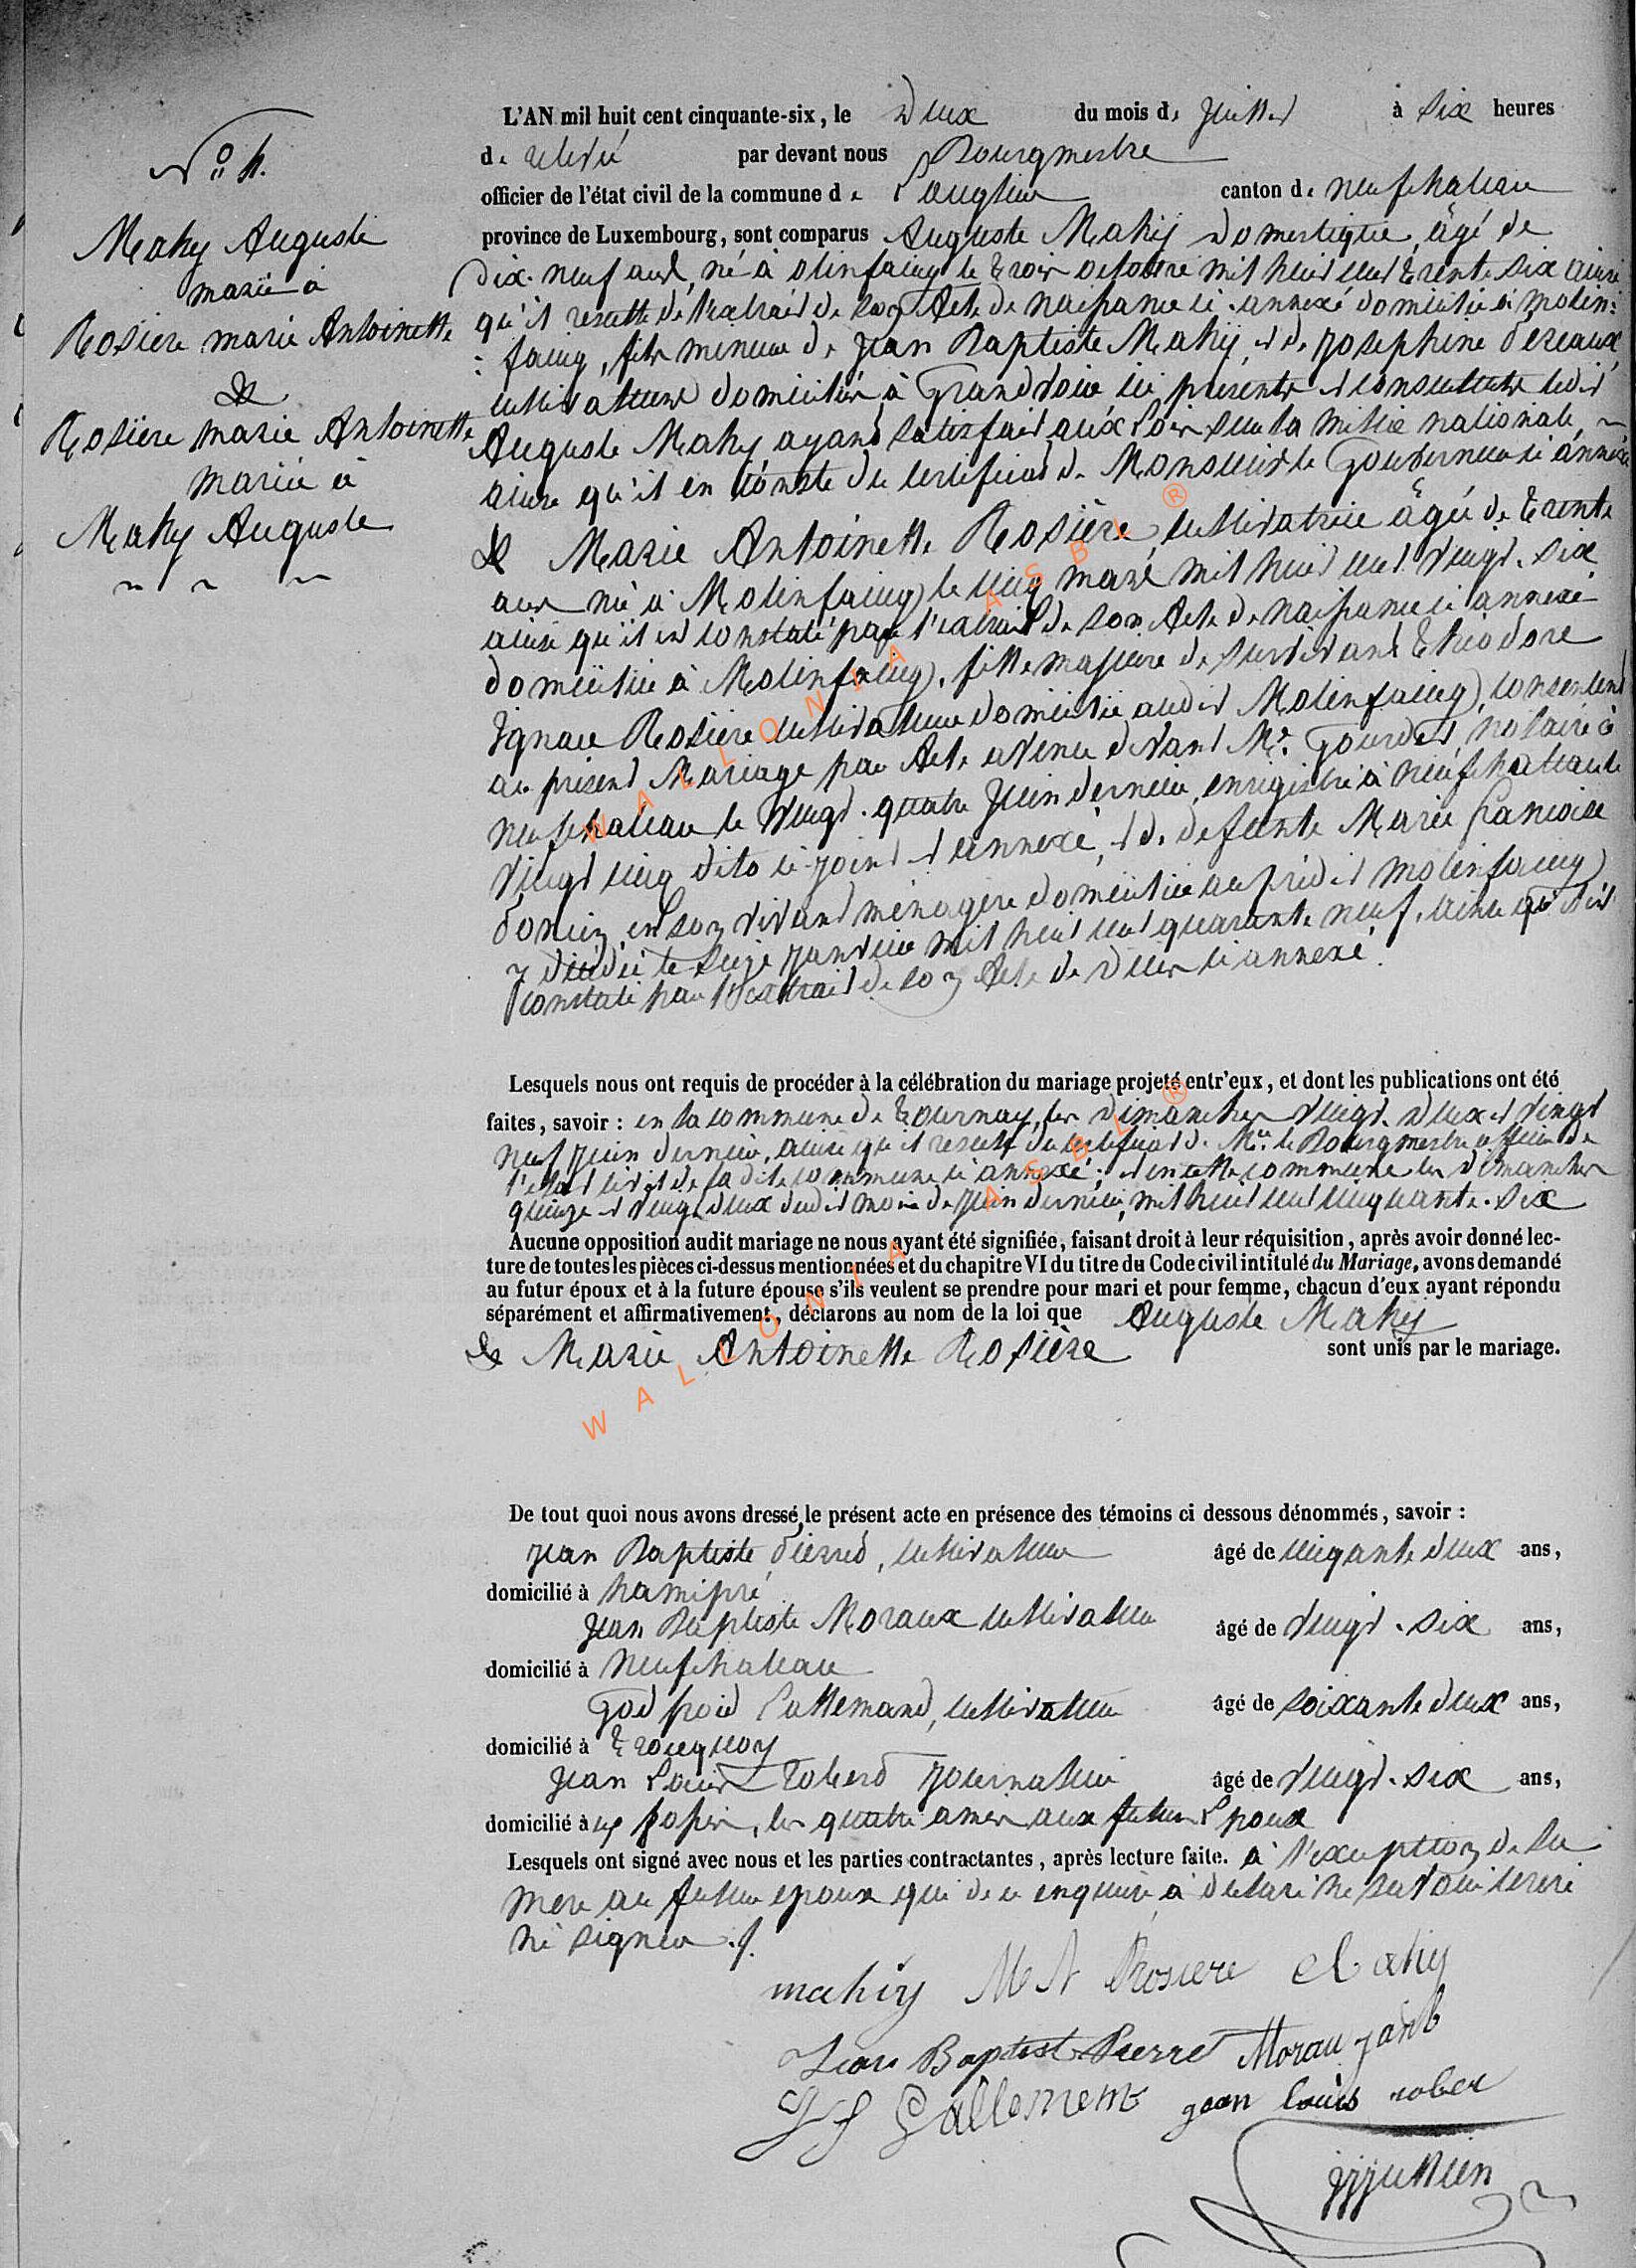 N° 4.
Mahy Auguste
marié à
Rosière marie Antoinette
&
Rosière marie Antoinette
mariée à
Mahy Auguste
L'AN mil huit cent cinquante-six, le Deux du mois de Juillet à six heures
de relevée par devant nous Bourgmestre
officier de l'état civil de la commune de Longlier canton de neufchateau
province de Luxembourg, sont comparus Auguste Mahy Domestique, âgé de
Dix-neuf ans, né à Molinfaing le trois octobre mil huit cent trente six ainsi
qu'il resulte de l'extrait de son Acte de naissance ci-annexé domicilié à molin=
=faing, fils mineur de Jean Baptiste Mahy, et de Josephine
cultivateurs domiciliés à Grandvoir ici présents et consentants ledit
Auguste Mahy ayant satisfait aux Lois sur la milice nationale,
ainsi qu'il en conste du certificat de Monsieur le Gouverneur ci annexé
& Marie Antoinette Rosière, cultivatrice âgée de trente
ans née à Molinfaing le cinq mars mil huit cent vingt-six
ainsi qu'il est constaté par l'extrait de son Acte de naissance ci annexé
domiciliée à Molinfaing, fille majeure de survivant théodore
Ignace Rosière cultivateur domicilié audit Molinfaing, consentant
au présent Mariage par Acte avenu devant Mr. Gourdet, notaire à
neufchateau le vingt-quatre Juin dernier, enregistré à neufchateau le
vingt cinq dito ci-joint et annexé, et de defunte Marie francoise
en son vivant ménagère domiciliée au prédit molinfaing
y décédée le seize janvier mil huit cent quarante neuf, ainsi qu'il est
constaté par l'extrait de son Acte de décès ci annexé.
Lesquels nous ont requis de procéder à la célébration du mariage projeté entr'eux, et dont les publications ont été
faites, savoir : en la commune de tournay, les dimanches vingt deux et vingt
neuf juin dernier, ainsi qu'il resulte du certificat de Mr. le Bourgmestre officier de
l'etat civil de la dite commune ci annexé; et en cette commune les dimanches
quinze et vingt deux dudit mois de juin dernier, mil huit cent cinquante-six
Aucune opposition audit mariage ne nous ayant été signifiée, faisant droit à leur réquisition, après avoir donné lec-
ture de toutes les pièces ci-dessus mentionnées et du chapitre VI du titre du Code civil intitulé du Mariage, avons demandé
au futur époux et à la future épouse s'ils veulent se prendre pour mari et pour femme, chacun d'eux ayant répondu
séparément et affirmativement, déclarons au nom de la loi que Auguste Mahy
& Marie Antoinette Rosière sont unis par le mariage.
De tout quoi nous avons dressé le présent acte en présence des témoins ci dessous dénommés, savoir :
Jean Baptiste Pierred, cultivateur âgé de cinqante deux ans,
domicilié à hamipré
Jean Baptiste Moraux cultivateur âgé de vingt-six ans,
domicilié à Neufchateau
Godfroid Lallemand, cultivateur âgé de soixante deux ans,
domicilié à tronquoy
Jean Louis Roberd journalier âgé de vingt-six ans,
domicilié à les fossés, les quatre amis aux futurs Epoux
Lesquels ont signé avec nous et les parties contractantes, après lecture faite. à l'exception de la
mere au futur epoux qui de ce enquise à declaré ne savoir ecrire
ni signer
mahiy M A Rosiere
Jean Baptist Pierre Morau
Gallement jean louis rober
WALLONIA ASBL ®
WALLONIA ASBL ®